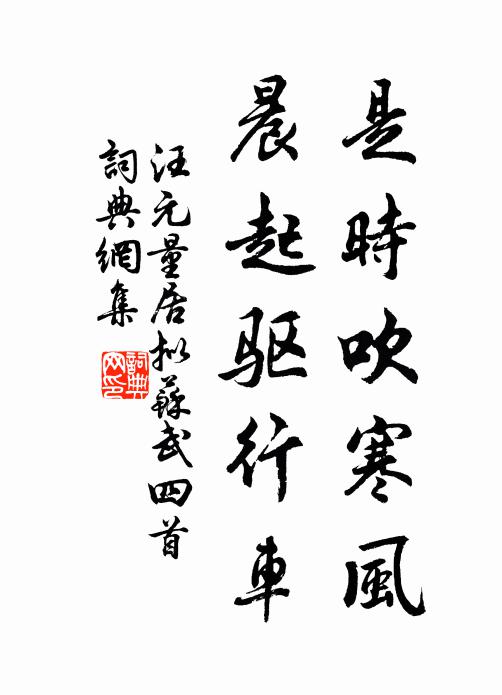 是時吹寒風
晨起驱行車
汪元量居拟蘇武四首
詞典網集
詞典
网印